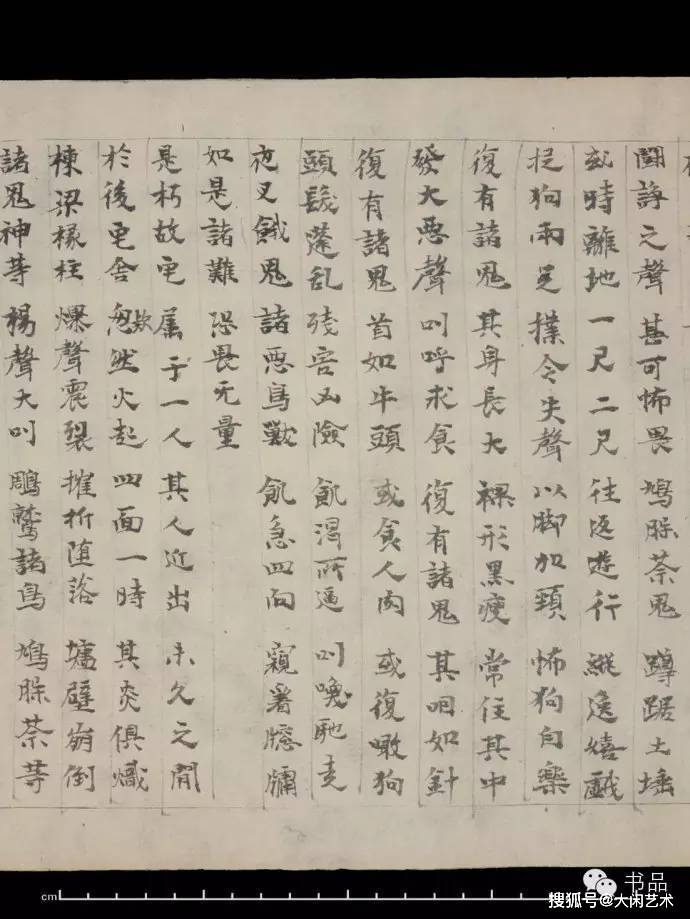 鬪諍之聲 甚可怖畏 鳩脲荼鬼 蹲踞土埵
或時離地 一尺二尺 往返遊行 縱逸嬉戲
捉狗兩足 撲令失聲 以脚加頸 怖狗自樂
復有諸鬼 其身長大 裸形黑瘦 常住其中
發大惡聲 叫呼求食 復有諸鬼 其咽如針
復有諸鬼 首如牛頭 或食人肉 或復噉狗
頭髮蓬乱 殘害凶險 飢渴所逼 叫喚馳走
夜叉餓鬼 諸惡鳥獸 飢急四向 窺看牕牖
如是諸難 恐畏无量
是朽故宅 属于一人 其人近出 未久之間
於後宅舍 忽然火起 四面一時 其炎俱熾
欻
棟梁椽柱 爆聲震裂 摧折墮落 墻壁崩倒
諸鬼神等 揚聲大叫 鵰鷲諸鳥 鳩脲荼等
cm
书品
搜狐号@大闲艺术